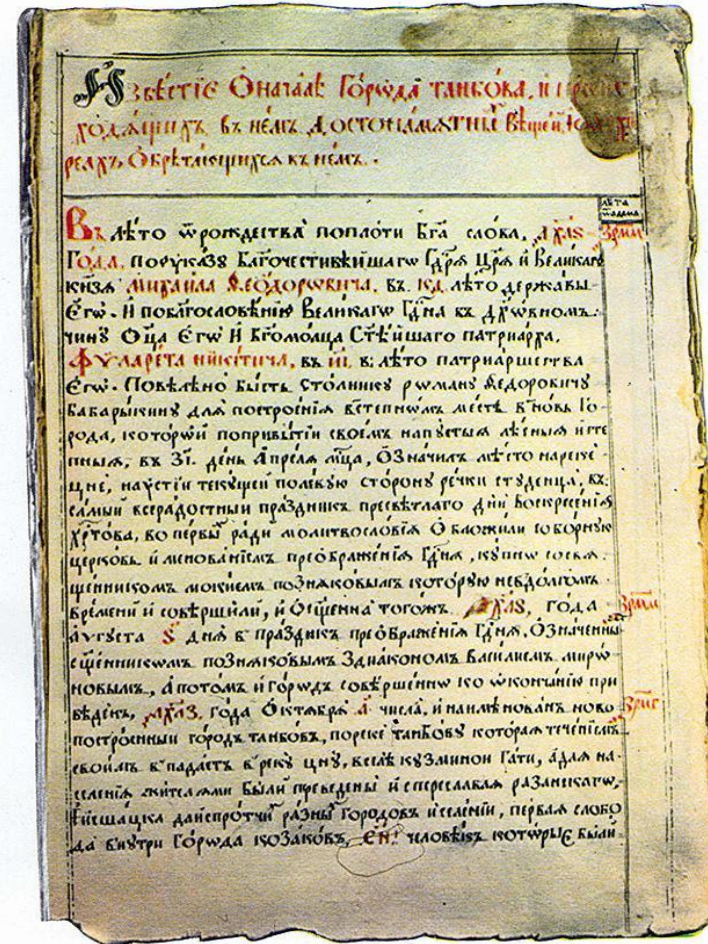 Извѣстїе Ѡначалѣ Го́рѡда танбо́ва, и прои҆с
ходѧ́щихъ в нє́мъ достопа́мѧтны̆ Вѣщеи,
реахъ, Ѡбрѣтаю́щихсѧ в нє́мъ.
лѣта
ѿадама
Въ лѣ́то ѿрождества̀ поплоти Бг҃а сло́ва, ҂а҃хл҃ѕ ҂зрмд
Го́да, поуказꙋ Благочестивѣ́йшагѡ Гд҃рѧ Цр҃ѧ и Великагѡ
кнѧзѧ Михаила Ѳео́дорѡвича, въ к҃д лѣто державы
Єгѡ̀. И поблагословѣ́нїю Великагѡ Гд҃на въ дꙋхо́вномъ
чинꙋ Оц҃а Єгѡ̀ И Бг҃омо́лца Ст҃ѣ́йшаго патриа́рха,
Фѵларе́та ники́тича, въ і҃і, в: лѣ́то патриа́ршества
Єгѡ̀. Повѣлѣно бы́сть сто́лникꙋ рѡманꙋ Ѳедоровичꙋ
бабары́кинꙋ длѧ построе́нїѧ в степно́мъ ме́стѣ вно́вь Го́-
рода, кото́рыи поприбы́тїи свое́мъ напꙋсты́ѧ лѣсны́ѧ исте
пны́ѧ, въ з҃і. день Апре́лѧ мц҃а, Ѡзначилъ мѣсто нареке́
цнѐ, наꙋстїи текꙋщеи полевꙋю сто́ронꙋ ре́чки стꙋденца̀, въ
са́мый всера́достныи пра́здникъ пресвѣ́тлаго дн҃и Воскресе́нїѧ
хр҃то́ва, во первы̆ ради молитвосло́вїѧ Ѡбложили собо́рнꙋю
це́рковь именова́нїемъ преѡбраже́нїѧ Гд҃нѧ, кꙋпнѡ сосвѧ
ще́нникомъ моки́емъ познѧко́вымъ которꙋю невдолгомъ
вре́мени и совѣрши́ли, и Ѡсщ҃е́нна тогожъ ҂а҃хл҃ѕ, года ҂зрмд
а҆́ѵгꙋста ѕ҃ днѧ̀ в пра́здникъ преѡбраже́нїѧ Гд҃нѧ, Ѡзначе́нны
сщ҃е́нникѡмъ познѧко́вымъ Здиа́кономъ Василиемъ мирѡ
но́вымъ, Апото́мъ и го́рѡдъ соверше́ннѡ ко ѡконча́нїю при
ве́денъ, ҂а҃хл҃з. го́да Ѻктѧ́брѧ а҃ числа̀, инаимено́ванъ ново ҂зрмє
постро́енныи горо́дъ танбо́въ, поре́ке танбо́вꙋ кото́раѧ тече́нїемъ
свои́мъ в падаетъ в рекꙋ цнꙋ, вселѣ кꙋзминои Гати, Адлѧ на-
селе́нїѧ жи́телѧми былѝ преведены̀ и спересла́влѧ рѧза́нскагѡ,
Ѿшацка даиспро́тчй ра́зны̆ Городо́въ и селе́ніи, пе́рваѧ слобо
да вънꙋтри Го́рѡда коза́ковъ, человѣ́къ кото́рые бы́ли